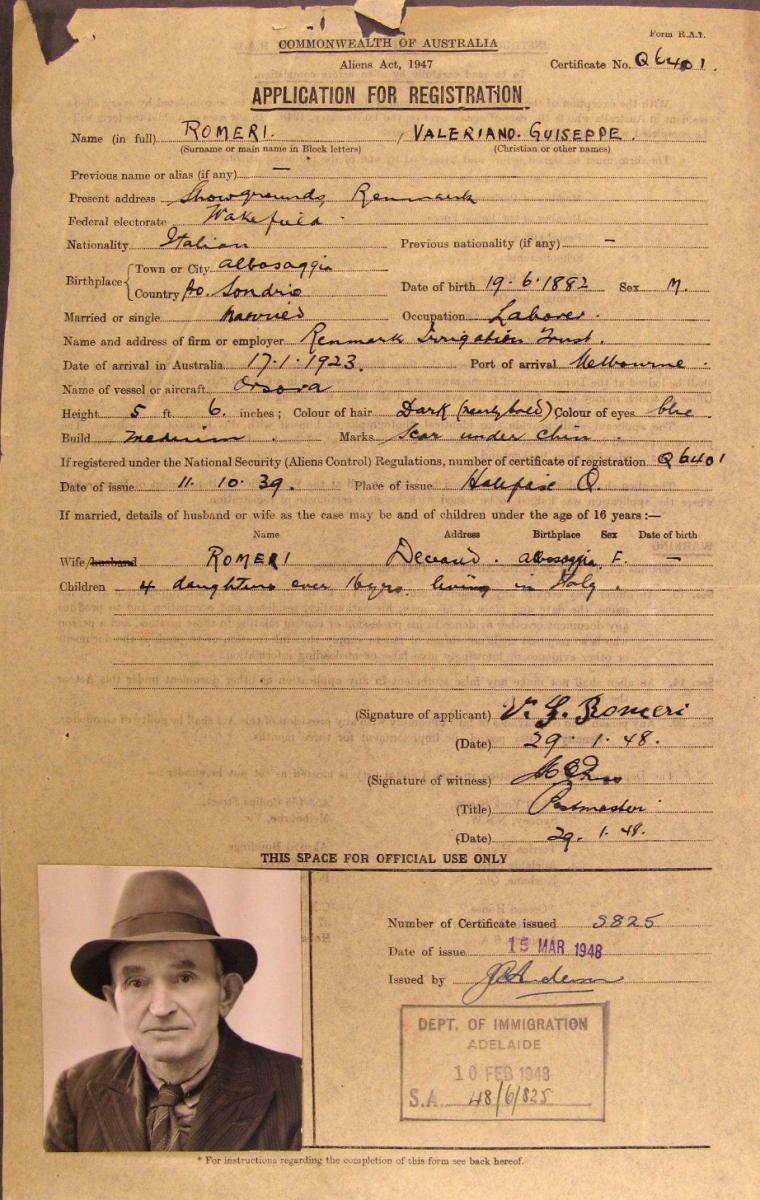 Form R.A.1.
COMMONWEALTH OF AUSTRALIA
Aliens Act, 1947 Certificate No. Q6401.
APPLICATION FOR REGISTRATION
Name (in full) ROMERI. , VALERIANO. GUISEPPE.
(Surname or main name in Block letters) (Christian or other names)
Previous name or alias (if any) —
Present address Showgrounds, Renmark
Federal electorate Wakefield.
Nationality Italian Previous nationality (if any) —
Birthplace { Town or City albosaggia
Country Po. Sondrio Date of birth 19.6.1882 Sex M.
Married or single married Occupation Laborer.
Name and address of firm or employer Renmark Irrigation Trust.
Date of arrival in Australia 17.1.1923. Port of arrival Melbourne.
Name of vessel or aircraft Orsova
Height 5 ft. 6. inches; Colour of hair Dark (nearly bald) Colour of eyes blue
Build medium. Marks Scar under chin.
If registered under the National Security (Aliens Control) Regulations, number of certificate of registration Q6401
Date of issue 11. 10. 39. Place of issue Q.
If married, details of husband or wife as the case may be and of children under the age of 16 years:—
Name Address Birthplace Sex Date of birth
Wife/husband ROMERI albosaggia F. —
Children 4 daughters over 16yrs. living in Italy.
(Signature of applicant) V. G. Romeri
(Date) 29.1.48.
(Signature of witness)
(Title) Postmaster
(Date) 29.1.48.
THIS SPACE FOR OFFICIAL USE ONLY
Number of Certificate issued S825
Date of issue 15 MAR 1948
Issued by
DEPT. OF IMMIGRATION
ADELAIDE
10 FEB 1948
S.A. 48/6/825
* For instructions regarding the completion of this form see back hereof.